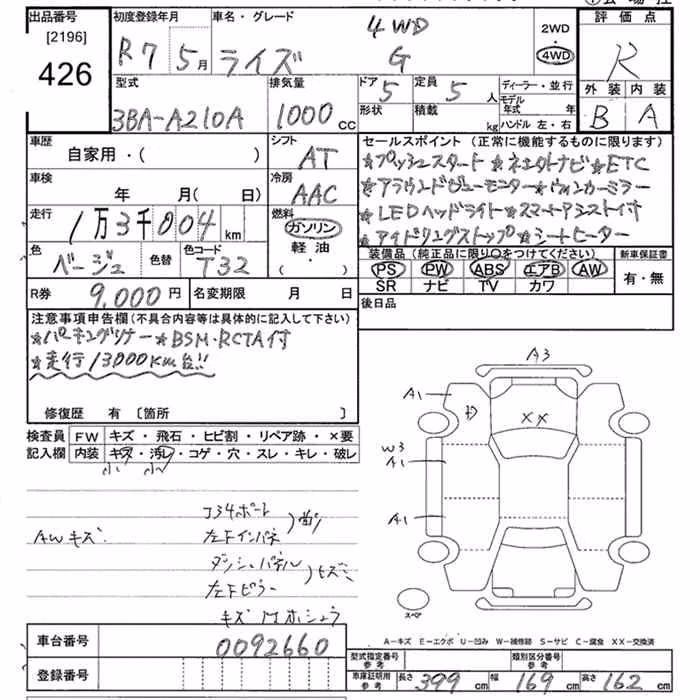 出品番号 [2196] 426
初度登録年月 R7年 5月
車名・グレード ライズ 4WD G
2WD ・ 4WD
評価点 R
外装 B 内装 A
型式 3BA-A210A
排気量 1000 cc
ドア 5 形状
定員 5 人 積載 kg
ディーラー・並行
モデル年式 年
ハンドル 左・右
車歴 自家用・( )
シフト AT
車検 年 月(日)
冷房 AAC
走行 1万3千004 km
燃料 ガソリン 軽油・( )
色 ベージュ 色替 色コード T32
R券 9,000円 名変期限 月 日
セールスポイント (正常に機能するものに限ります)
★プッシュスタート ★コネクトナビ ★ETC
★アラウンドビューモニター ★ウィンカーミラー
★LEDヘッドライト ★スマートアシスト付
★アイドリングストップ ★シートヒーター
装備品 (純正品に限り○をつけてください) 新車保証書
PS PW ABS エアB AW 有・無
SR ナビ TV カワ
後日品
注意事項申告欄(不具合内容等は具体的に記入して下さい)
★パーキングソナー ★BSM・RCTA付
★走行13000km台!!
修復歴 有 [箇所 ]
検査員記入欄 FW キズ・飛石・ヒビ割・リペア跡・×要
内装 キズ・汚レ・コゲ・穴・スレ・キレ・破レ
小 小
AWキズ
コア
左Fインパネ
ダッシュパネル
左Fピラー
キズ
A3
A1
XX
W3
A1
A1
スペア
A-キズ E-エクボ U-凹み W-補修跡 S-サビ C-腐食 XX-交換済
車台番号 0092660
登録番号
型式指定番号 参考 類別区分番号 参考
車庫証明用 参考 長さ 399 cm 幅 169 cm 高さ 162 cm